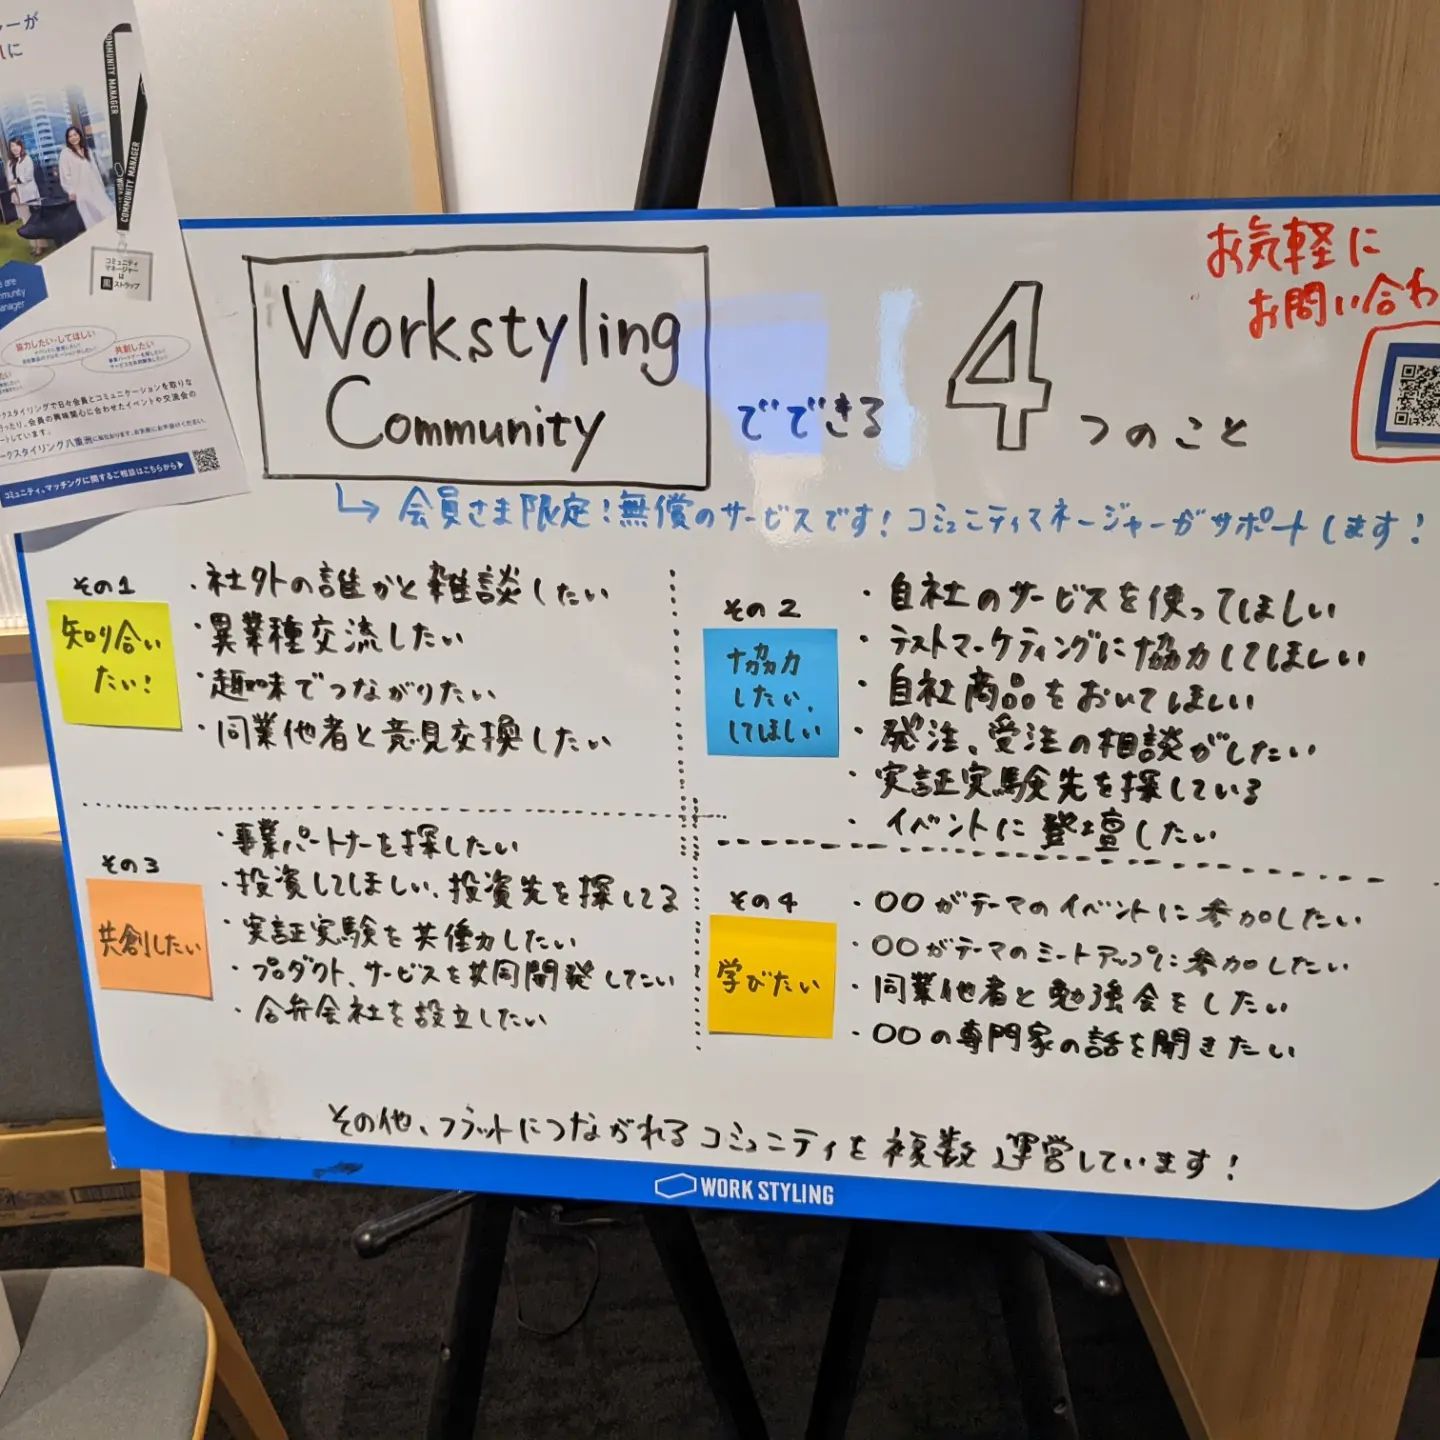 ーが
に
COMMUNITY MANAGER
COMMUNITY MANAGER
コミュニティ
マネージャー
は
黒ストラップ
協力したい・してほしい
共創したい
クスタイリングで日々会員とコミュニケーションを取りな
行ったり、会員の興味関心に合わせたイベントや交流会の
ートしています。
ークスタイリング八重洲
コミュニティ、マッチングに関するご相談はこちらから
お気軽に
お問い合わ
Workstyling
Community
でできる
4
つのこと
会員さま限定!無償のサービスです!コミュニティマネージャーがサポートします!
その1
知り合い
たい!
・社外の誰かと雑談したい
・異業種交流したい
・趣味でつながりたい
・同業他者と意見交換したい
その2
協力
したい、
してほしい
・自社のサービスを使ってほしい
・テストマーケティングに協力してほしい
・自社商品をおいてほしい
・発注、受注の相談がしたい
・実証実験先を探している
・イベントに登壇したい
その3
共創したい
・事業パートナーを探したい
・投資してほしい、投資先を探してる
・実証実験を共働したい
・プロダクト、サービスを共同開発したい
・合弁会社を設立したい
その4
学びたい
・〇〇がテーマのイベントに参加したい
・〇〇がテーマのミートアップに参加したい
・同業他者と勉強会をしたい
・〇〇の専門家の話を聞きたい
その他、フラットにつながれるコミュニティを複数運営しています!
WORK STYLING